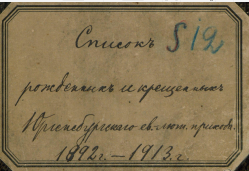 Списокъ S 12
рожденныхъ и крещенныхъ
Юргенсбургскаго ев.-лют. прихода.
1892 г. — 1913 г.